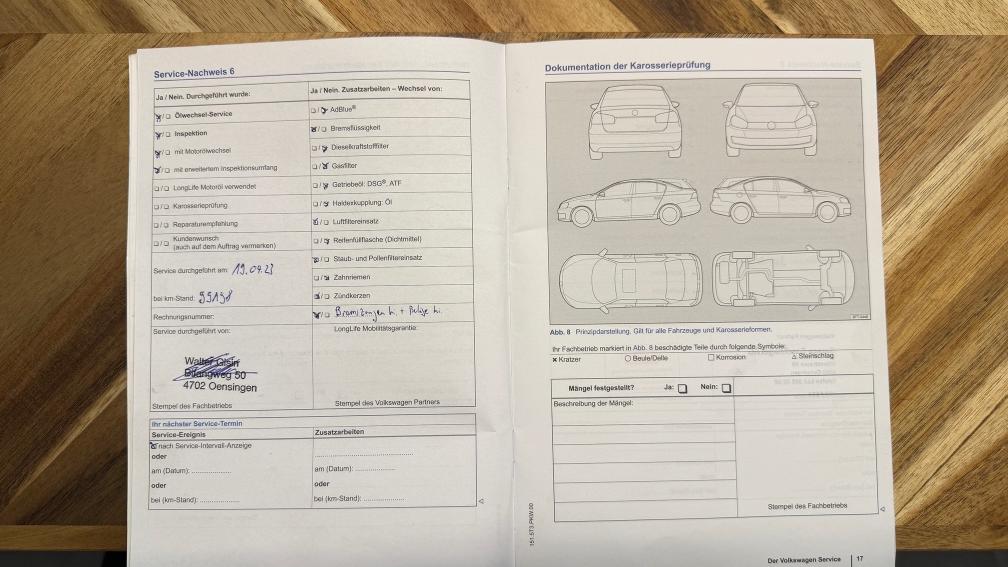 Service-Nachweis 6
Ja / Nein. Durchgeführt wurde:
Ölwechsel-Service
Inspektion
mit Motorölwechsel
mit erweitertem Inspektionsumfang
LongLife Motoröl verwendet
Karosserieprüfung
Reparaturempfehlung
Kundenwunsch
(auch auf dem Auftrag vermerken)
Service durchgeführt am: 19.04.23
bei km-Stand: 99198
Rechnungsnummer:
Service durchgeführt von:
Walter Gisin
50
4702 Oensingen
Stempel des Fachbetriebs
Ja / Nein. Zusatzarbeiten – Wechsel von:
AdBlue®
Bremsflüssigkeit
Dieselkraftstofffilter
Gasfilter
Getriebeöl: DSG®, ATF
Haldexkupplung: Öl
Luftfiltereinsatz
Reifenfüllflasche (Dichtmittel)
Staub- und Pollenfiltereinsatz
Zahnriemen
Zündkerzen
hi. + hi.
LongLife Mobilitätsgarantie:
Stempel des Volkswagen Partners
Ihr nächster Service-Termin
Service-Ereignis
nach Service-Intervall-Anzeige
oder
am (Datum): ....................
oder
bei (km-Stand): ....................
Zusatzarbeiten
am (Datum): ....................
oder
bei (km-Stand): ....................
Dokumentation der Karosserieprüfung
Abb. 8 Prinzipdarstellung. Gilt für alle Fahrzeuge und Karosserieformen.
Ihr Fachbetrieb markiert in Abb. 8 beschädigte Teile durch folgende Symbole:
Kratzer
Beule/Delle
Korrosion
Steinschlag
Mängel festgestellt? Ja: Nein:
Beschreibung der Mängel:
Stempel des Fachbetriebs
151.5T3.PKW.00
Der Volkswagen Service | 17